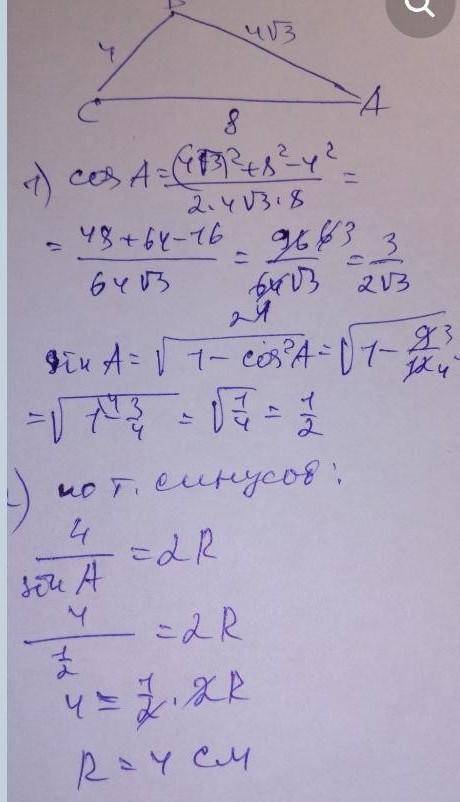 B
4
4√3
C
A
8
1) cos A = ((4√3)² + 8² - 4²) / (2·4√3·8) =
= (48 + 64 - 16) / (64√3) = 96 / (64√3) = 3 / (2√3)
sin A = √(1 - cos²A) = √(1 - 9/12)
= √(1 - 3/4) = √(1/4) = 1/2
) по т. синусов:
4 / sin A = 2R
4 / (1/2) = 2R
4 = 1/2 · 2R
R = 4 см